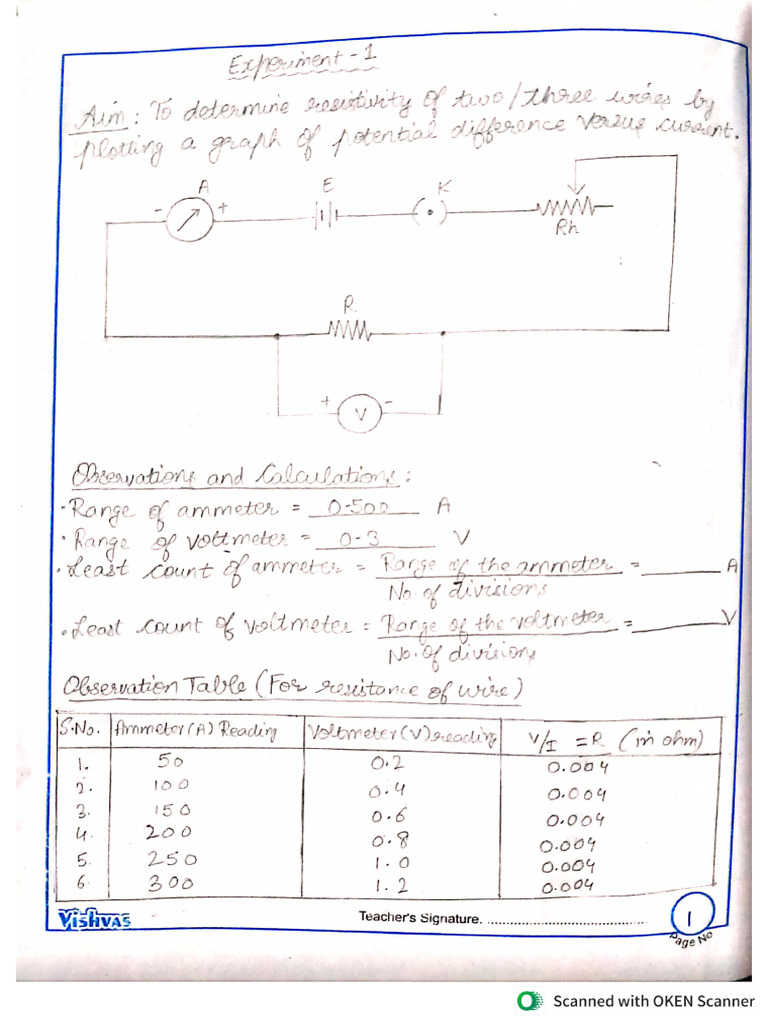 Experiment - 1
Aim : To determine resistivity of two/three wires by
plotting a graph of potential difference versus current.
A E K
- +
Rh
R
+ -
V
Observations and Calculations :
• Range of ammeter = 0-500 A
• Range of voltmeter = 0-3 V
• Least count of ammeter = Range of the ammeter = ______ A
No. of divisions
• Least count of voltmeter = Range of the voltmeter = ______ V
No. of divisions
Observation Table (For resistance of wire)
S.No. Ammeter (A) Reading Voltmeter (V) reading V/I = R (in ohm)
1. 50 0.2 0.004
2. 100 0.4 0.004
3. 150 0.6 0.004
4. 200 0.8 0.004
5. 250 1.0 0.004
6. 300 1.2 0.004
Vishvas Teacher's Signature. ........................................ 1
Page No
Scanned with OKEN Scanner